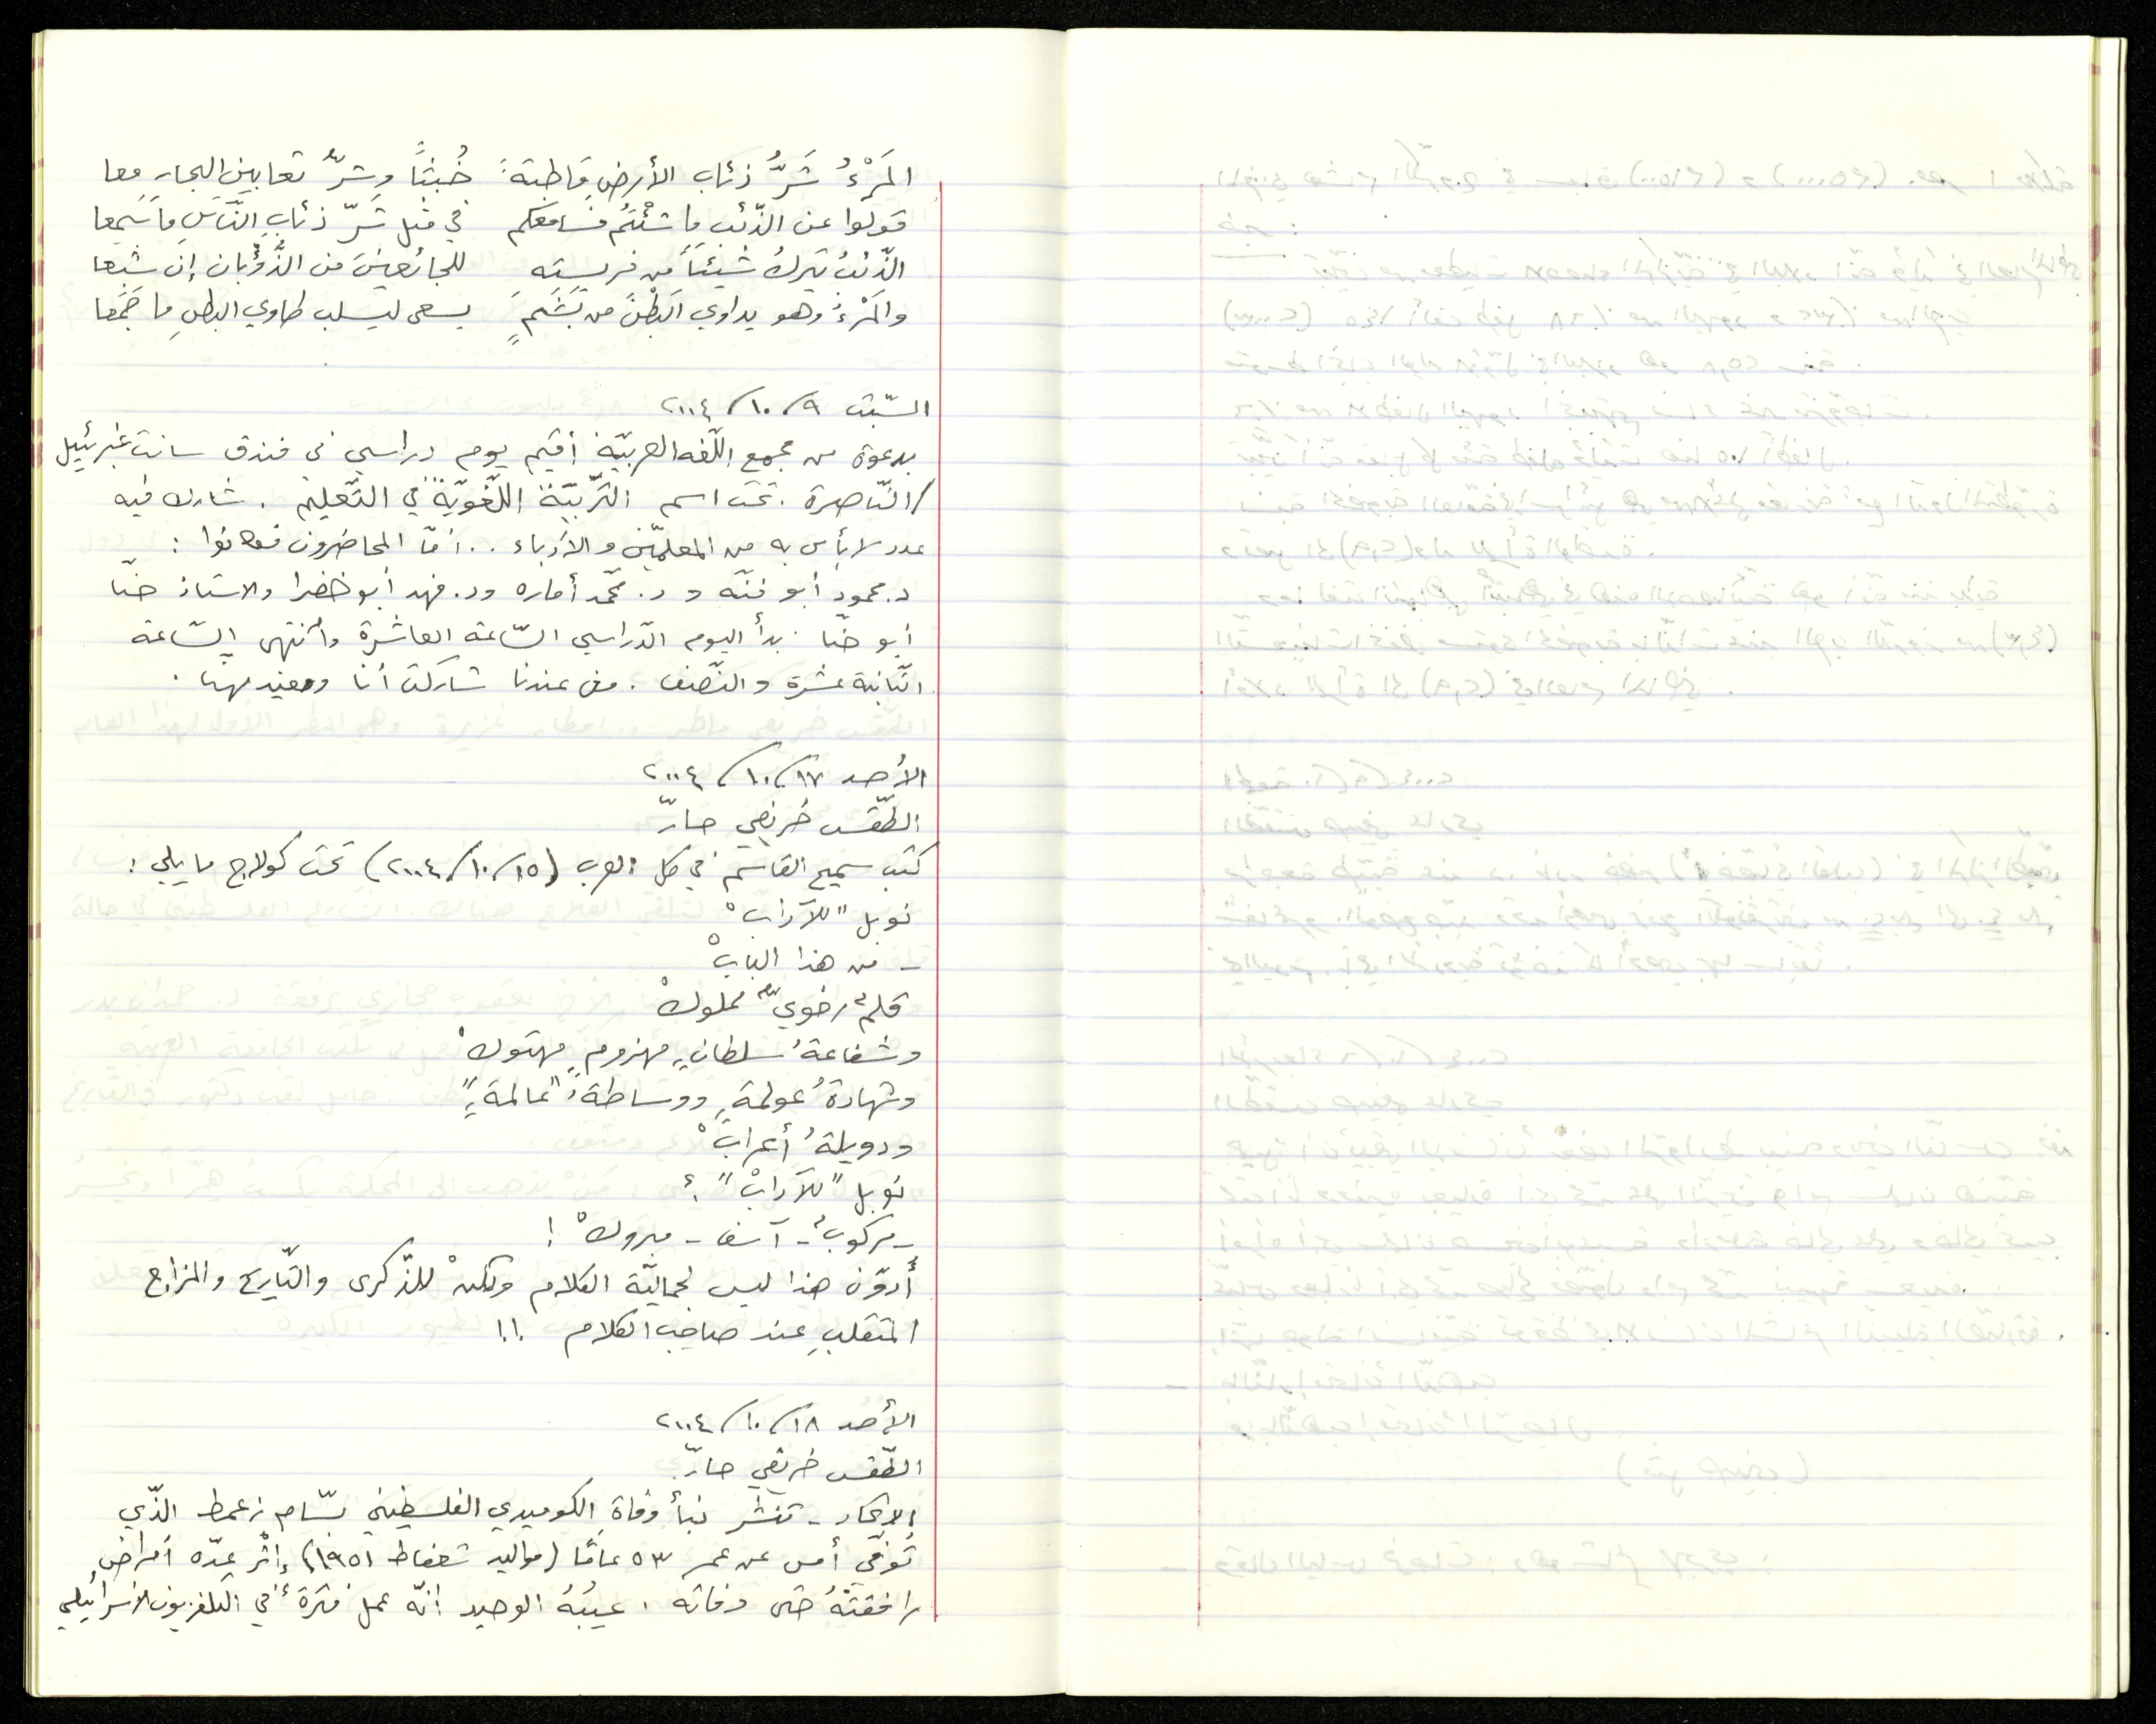 المَرْءُ شَرُّ ذئاب الأرضِ قاطبةً خُبثًا وشرُّ ثعابين البحار معا
قولوا عن الذّئب ما شئتُم فسامعكم في مثل شرّ ذئابِ النّاسِ ما سَمِعا
الذّئبُ يتركُ شيئًا من فريسته للجائعينَ من الذُّؤبان إن شبعا
والمَرْءُ وهو يداوي البَطْنَ من بَشَمٍ يسعى ليسلب طاوي البطنِ ما جَمَعا
السّبت ٩/١٠/٢٠٠٤
بدعوة من مجمع اللّغه العربيّة أقيم يوم دراسي في فندق سانت غبرئيل
/النّاصرة. تحت اسم التّربيّة اللّغويّة في التّعليم. شارك فيه
عدد لا بأس به من المعلمّين والأدباء.. أمّا المحاضرون فكانوا:
د. محمود أبو فنّه ود. محّمد أماره ود. فهد أبو خضرا والاستاذ حنّا
أبو حنّا. بدأ اليوم الدّراسي السّاعة العاشرة وأنتهى السّاعة
الثّانية عشرة والنّصف. من عندنا شاركت أنا ومفيد مهنّا.
الأحد ١٧/١٠/٢٠٠٤
الطّقس خريفي حارّ
كتب سميح القاسم في كل العرب (١٥/١٠/٢٠٠٤) تحت كولاج ما يلي:
نوبل "للآدابْ"
- من هذا البابْ
قلمٌ رخويٌّ مملوكْ
وشفاعةُ سلطانٍ مهزومٍ مهتوكْ
وشهادةُ عولمةٍ ووساطةُ "عالمةٍ"
ودويلةُ أعرابْ
نوبل "للآدابْ"؟
- مركوبٌ - آسف - مبروكْ!
أُدوّن هذا ليس لجماليّة الكلام ولكنْ للذّكرى والتّاريخ والمزاج
المتقلبِ عند صاحب الكلام !!
الأحد ١٨/١٠/٢٠٠٤
الطّقس خريفي حارّ
الإتحاد - تنشر نبأ وفاة الكوميدي الفلسطيني بسّام زعمط الذّي
تُوفّي أمس عن عمر ٥٣ عامًا (مواليد شعفاط ١٩٥١) إثْر عدّه أمراضٍ
رافقتْهُ حتى وفاته. عيبُهُ الوحيد أنّه عمل فترة في التلفزيون الاسرائيلي